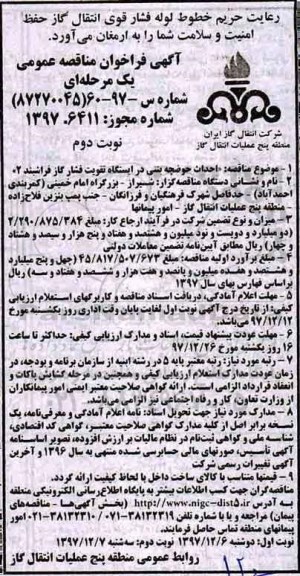 رعایت حریم خطوط لوله فشار قوی انتقال گاز حفظ
امنیت و سلامت شما را به ارمغان می‌آورد.
آگهی فراخوان مناقصه عمومی
یک مرحله‌ای
شماره س -۹۷-۶۰(۸۷۲۷۰۰۴۵)
شماره مجوز: ۱۳۹۷.۶۴۱۱
نوبت دوم
شرکت انتقال گاز ایران
منطقه پنج عملیات انتقال گاز
۱- موضوع مناقصه: احداث حوضچه بتنی در ایستگاه تقویت فشار گاز فراشبند ۰۲
۲- نام و نشانی دستگاه مناقصه‌گزار: شیراز - بزرگراه امام خمینی (کمربندی
احمدآباد) - حدفاصل شهرک فرهنگیان و فرزانگان - جنب پمپ بنزین فلاح‌زاده
- منطقه پنج عملیات انتقال گاز - امور پیمانها
۳- میزان و نوع تضمین شرکت در فرآیند ارجاع کار: مبلغ ۲/۲۹۰/۸۷۵/۳۸۴
(دو میلیارد و دویست و نود میلیون و هشتصد و هفتاد و پنج هزار و سیصد و هشتاد
و چهار) ریال مطابق آیین‌نامه تضمین معاملات دولتی
۴- مبلغ برآورد اولیه مناقصه: مبلغ ۴۵/۸۱۷/۵۰۷/۶۷۳ (چهل و پنج میلیارد
و هشتصد و هفده میلیون و پانصد و هفت هزار و ششصد و هفتاد و سه) ریال
براساس فهارس بهای سال ۱۳۹۷
۵- مهلت اعلام آمادگی، دریافت اسناد مناقصه و کاربرگهای استعلام ارزیابی
کیفی: از تاریخ درج آگهی نوبت اول لغایت پایان وقت اداری روز یکشنبه مورخ
۹۷/۱۲/۱۲
۶- مهلت عودت پیشنهاد قیمت، اسناد و مدارک ارزیابی کیفی: حداکثر تا ساعت
۱۶ روز یکشنبه مورخ ۹۷/۱۲/۲۶
۷- رتبه مورد نیاز: رتبه معتبر پایه ۵ در رشته ابنیه از سازمان برنامه و بودجه، در
زمان عودت مدارک استعلام ارزیابی کیفی و همچنین در مرحله گشایش پاکات و
انعقاد قرارداد الزامی است. ارائه گواهی صلاحیت معتبر ایمنی امور پیمانکاران
از وزارت تعاون، کار و رفاه اجتماعی نیز الزامی می‌باشد.
۸- مدارک مورد نیاز جهت تحویل اسناد: نامه اعلام آمادگی و معرفی‌نامه، یک
نسخه برابر اصل از کلیه مدارک گواهی صلاحیت معتبر، گواهی کد اقتصادی،
شناسه ملی و گواهی ثبت‌نام در نظام مالیات بر ارزش افزوده، تصویر اساسنامه
آگهی تأسیس، صورتهای مالی حسابرسی شده منتهی به سال ۱۳۹۶ و آخرین
آگهی تغییرات رسمی شرکت
۹- قیمتها متناسب با کالای ساخت داخل با لحاظ کیفیت ارائه گردد.
مناقصه‌گران جهت کسب اطلاعات بیشتر به پایگاه اطلاع‌رسانی الکترونیکی منطقه
به آدرس http://www.nigc-dist5.ir (بخش آگهی‌ها - مناقصه‌های
پیمان) مراجعه و یا با شماره تلفن ۳۸۱۳۲۳۱۹-۰۷۱ / ۳۸۱۳۲۳۱۰-۰۲۱ امور
پیمانهای منطقه تماس حاصل فرمایند.
نوبت اول: دوشنبه ۱۳۹۷/۱۲/۶ نوبت دوم: سه‌شنبه ۱۳۹۷/۱۲/۷
روابط عمومی منطقه پنج عملیات انتقال گاز